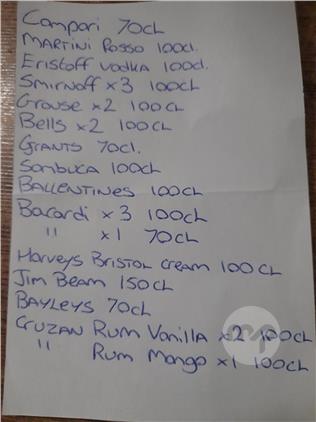 Campari 70cL
MARTINI ROSSO 100cl.
Eristoff vodka 100cl.
Smirnoff x 3 100cL
Grouse x2 100CL
Bells x2 100CL
GRANTS 70cl.
Sambuca 100cL
BALLENTINES 100CL
Bacardi x 3 100CL
" x1 70CL
Harveys Bristol Cream 100CL
Jim Beam 150CL
BAYLEYS 70cl
CRUZAN Rum Vanilla x2 100CL
" Rum Mango x1 100CL